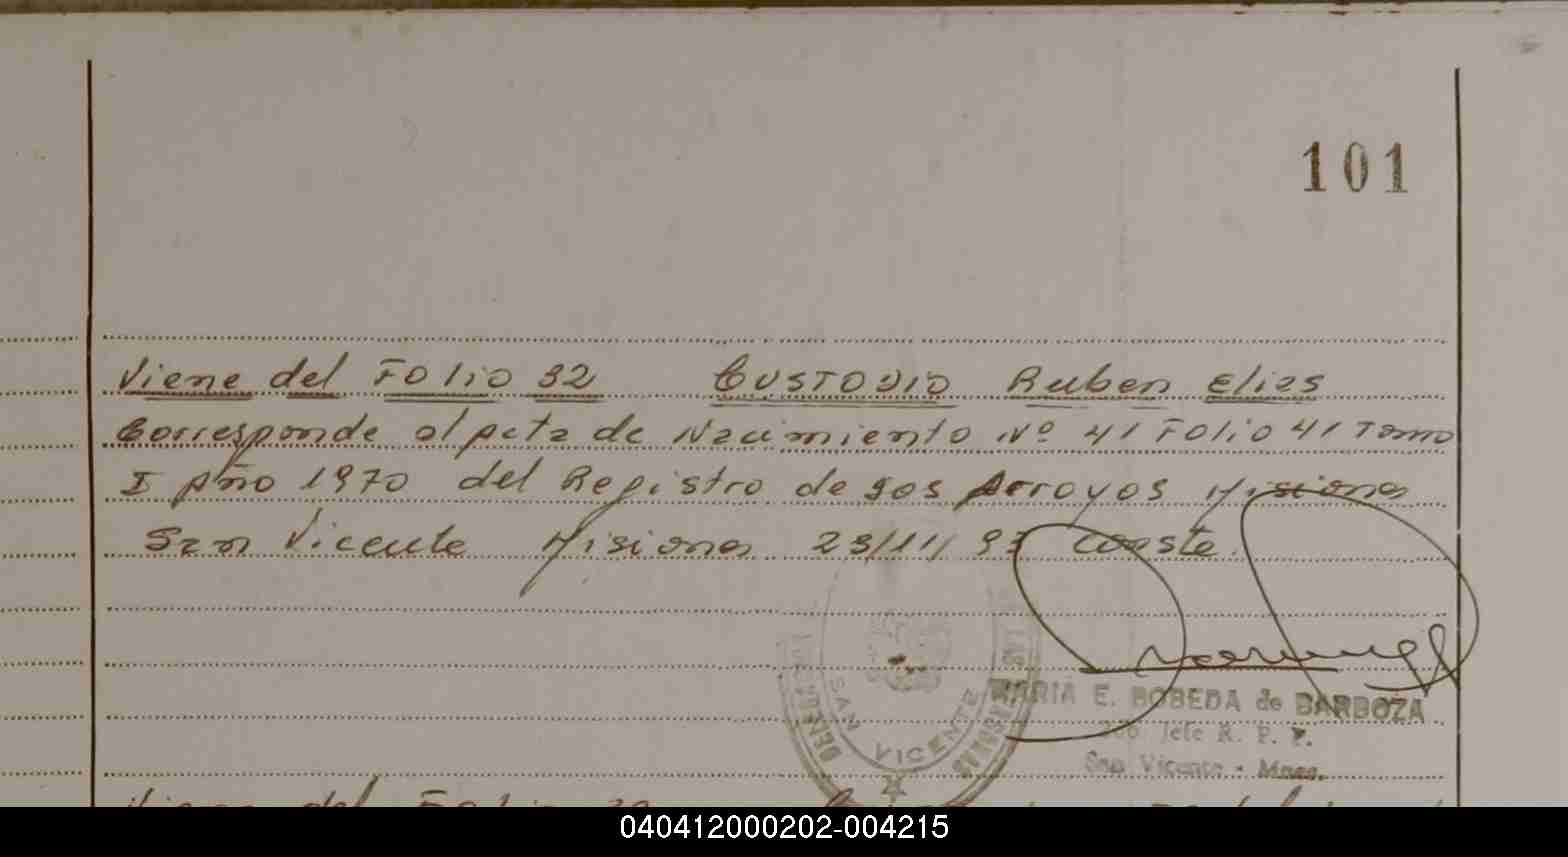 101
Viene del Folio 32 Custodio Ruben Elias
Corresponde al acta de Nacimiento Nº 41 Folio 41 Tomo
I Año 1970 del Registro de Dos Arroyos Misiones
San Vicente Misiones 23/11/93 Conste.
SAN VICENTE
MARIA E. BOBEDA de BARBOZA
Sub Jefe R. P. P.
San Vicente - Mnes.
Viene del Folio 32
040412000202-004215